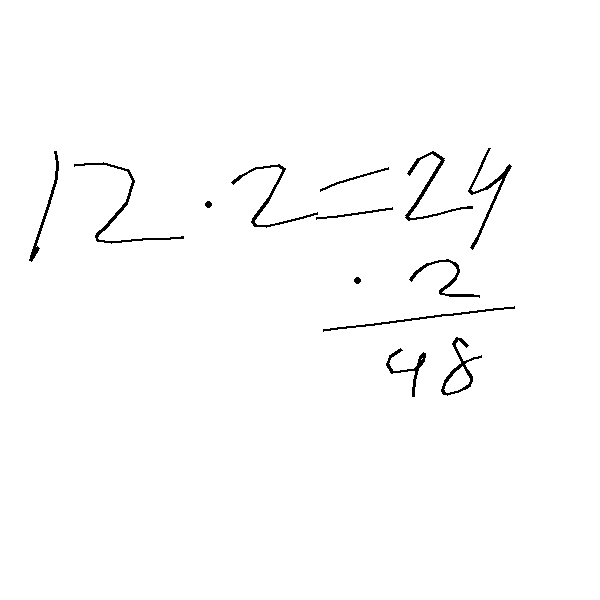 12 · 2 = 24
· 2
48